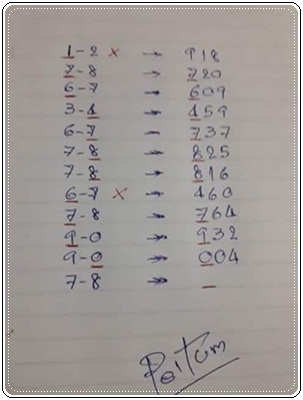 1-2 × → 918
7-8 → 720
6-7 → 609
3-4 → 459
6-7 → 737
7-8 → 825
7-8 → 816
6-7 × → 460
7-8 → 764
9-0 → 932
9-0 → 004
7-8 → _